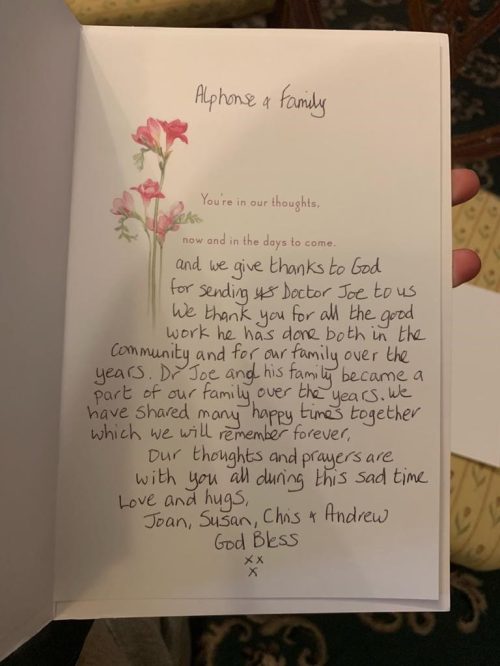 Alphonse & Family
You're in our thoughts,
now and in the days to come.
and we give thanks to God
for sending us Doctor Joe to us
We thank you for all the good
work he has done both in the
Community and for our family over the
years. Dr Joe and his family became a
part of our family over the years. We
have shared many happy times together
which we will remember forever,
Our thoughts and prayers are
with you all during this sad time
Love and hugs,
Joan, Susan, Chris & Andrew
God Bless
x x
x